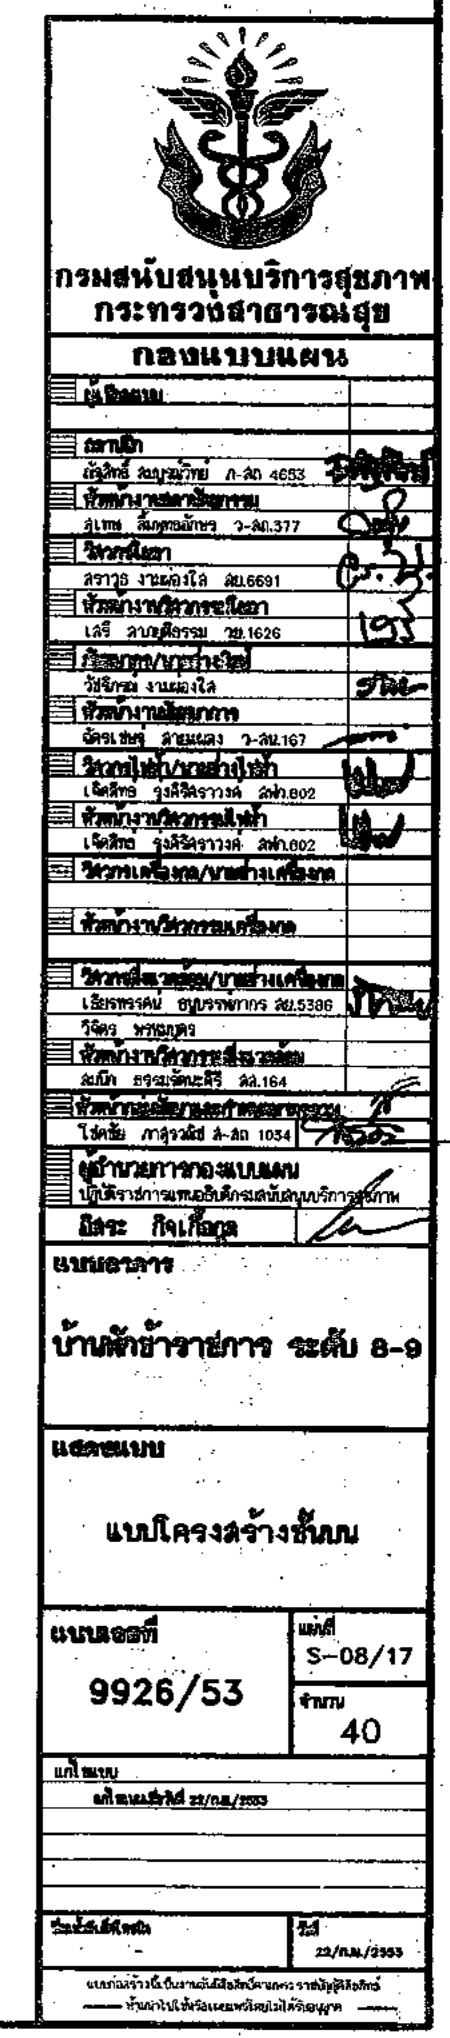 กรมสนับสนุนบริการสุขภาพ
กระทรวงสาธารณสุข
กองแบบแผน
ผู้เขียนแบบ
สถาปนิก
ณัฐสิทธิ์ สมบูรณ์วิทย์ ภ-สถ 4653
หัวหน้างานสถาปัตยกรรม
สุเทพ ลิ้มพุทธอักษร ว-สถ.377
วิศวกรโยธา
สราวุธ งามผ่องใส สย.6691
หัวหน้างานวิศวกรรมโยธา
เสรี ลาภยุติธรรม วย.1626
มัณฑนากร/นายช่างศิลป์
งามผ่องใส
หัวหน้างานมัณฑนาการ
ฉัตรเชษฐ์ สายแผลง ว-สน.167
วิศวกรไฟฟ้า/นายช่างไฟฟ้า
เจิดสิทธ รุ่งศิริศราวงศ์ สฟก.802
หัวหน้างานวิศวกรรมไฟฟ้า
เจิดสิทธ รุ่งศิริศราวงศ์ สฟก.802
วิศวกรเครื่องกล/นายช่างเครื่องกล
หัวหน้างานวิศวกรรมเครื่องกล
วิศวกรสิ่งแวดล้อม/นายช่างเครื่องกล
เธียรทรรศน์ สย.5386
วิจิตร
หัวหน้างานวิศวกรรมสิ่งแวดล้อม
สมนึก ธรรมรัตนะศิริ สส.164
โชคชัย ส-สถ 1034
ผู้อำนวยการกองแบบแผน
ปฏิบัติราชการแทนอธิบดีกรมสนับสนุนบริการสุขภาพ
อิสระ กิจเกื้อกูล
แบบอาคาร
บ้านพักข้าราชการ ระดับ 8-9
แสดงแบบ
แบบโครงสร้างชั้นบน
แบบเลขที่
9926/53
แผ่นที่
S-08/17
จำนวน
40
แก้ไขแบบ
แก้ไขแบบเมื่อวันที่ 22/ก.ย./2553
วันที่
22/ก.ย./2553
แบบก่อสร้างนี้เป็นงานอันมีลิขสิทธิ์ตามพระราชบัญญัติลิขสิทธิ์
ห้ามนำไปใช้หรือเผยแพร่โดยไม่ได้รับอนุญาต